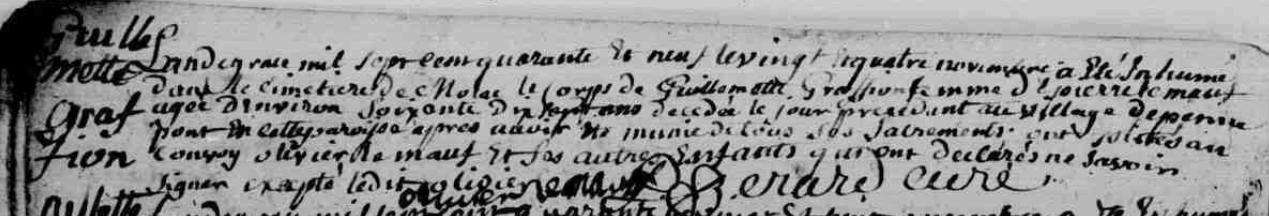 Guille
motte
Graf
fion
Landegrace mil sept cent quarante Et neuf le vingt Equatre novembre a Eté Inhumé
dans le cimetiere de Molac le corps de Guillemotte Graffion femme de pierre le mauf
agée D'Environ soixante dix sept ans decedée le jour precedent au village de
pont En cette paroisse apres avoir été munie de tous Ses Sacrements. ont assistés au
Convoy olivier le mauf Et ses autres Enfants qui ont declarés ne Savoir
Signer excepté ledit olivier
olivier le mauf Berard curé